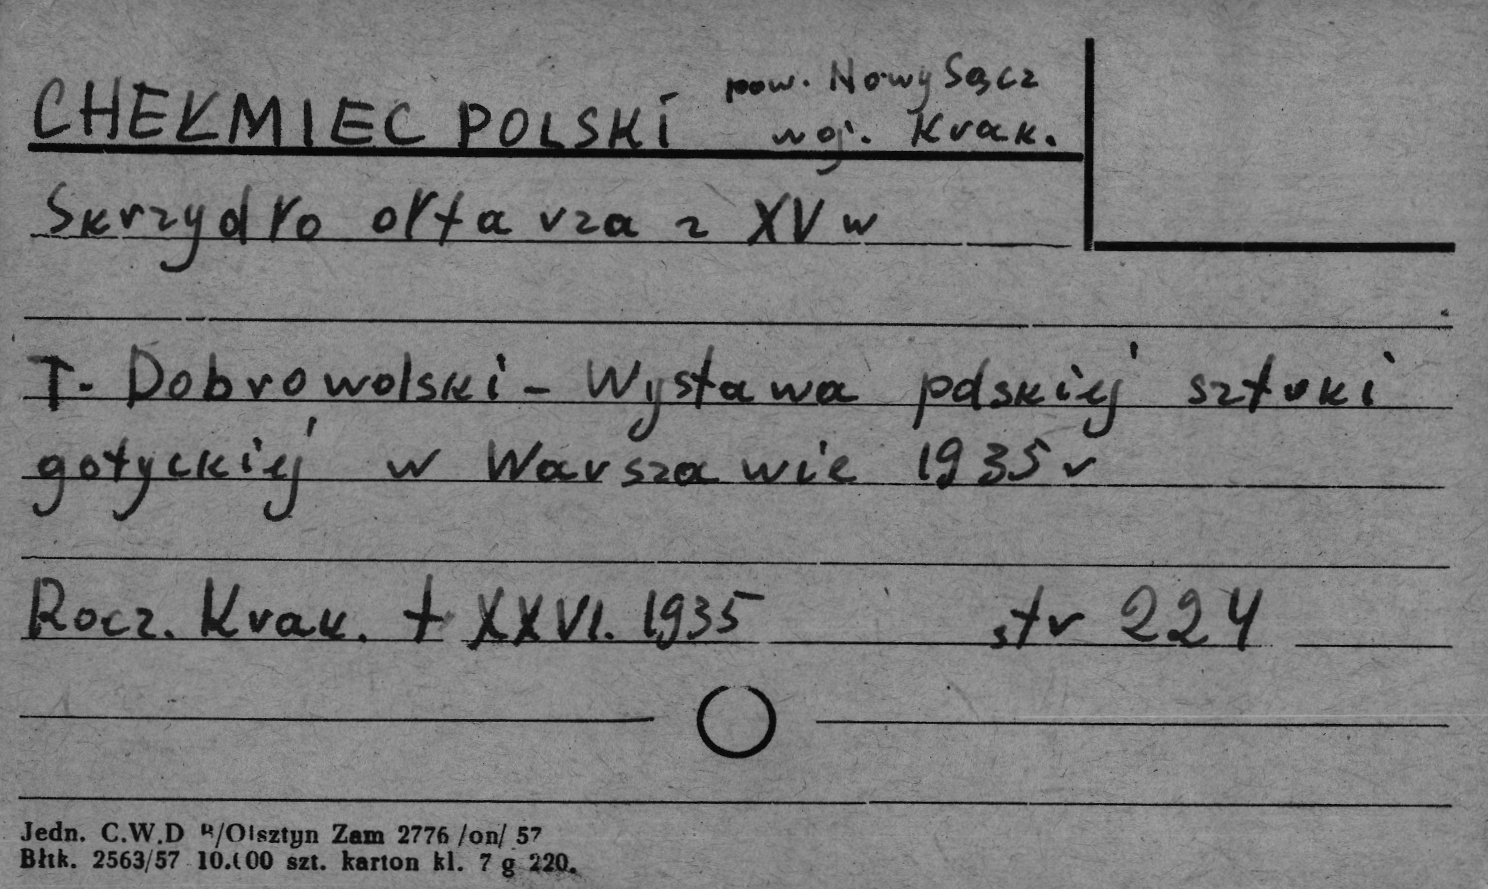 CHEŁMIEC POLSKI pow. Nowy Sącz
woj. Krak.
Skrzydło ołtarza z XV w
T. Dobrowolski - Wystawa polskiej sztuki
gotyckiej w Warszawie 1935 r
Rocz. Krak. t XXVI. 1935 str 224
Jedn. C.W.D B/Olsztyn Zam 2776 /on/ 57
Błtk. 2563/57 10.000 szt. karton kl. 7 g 220.